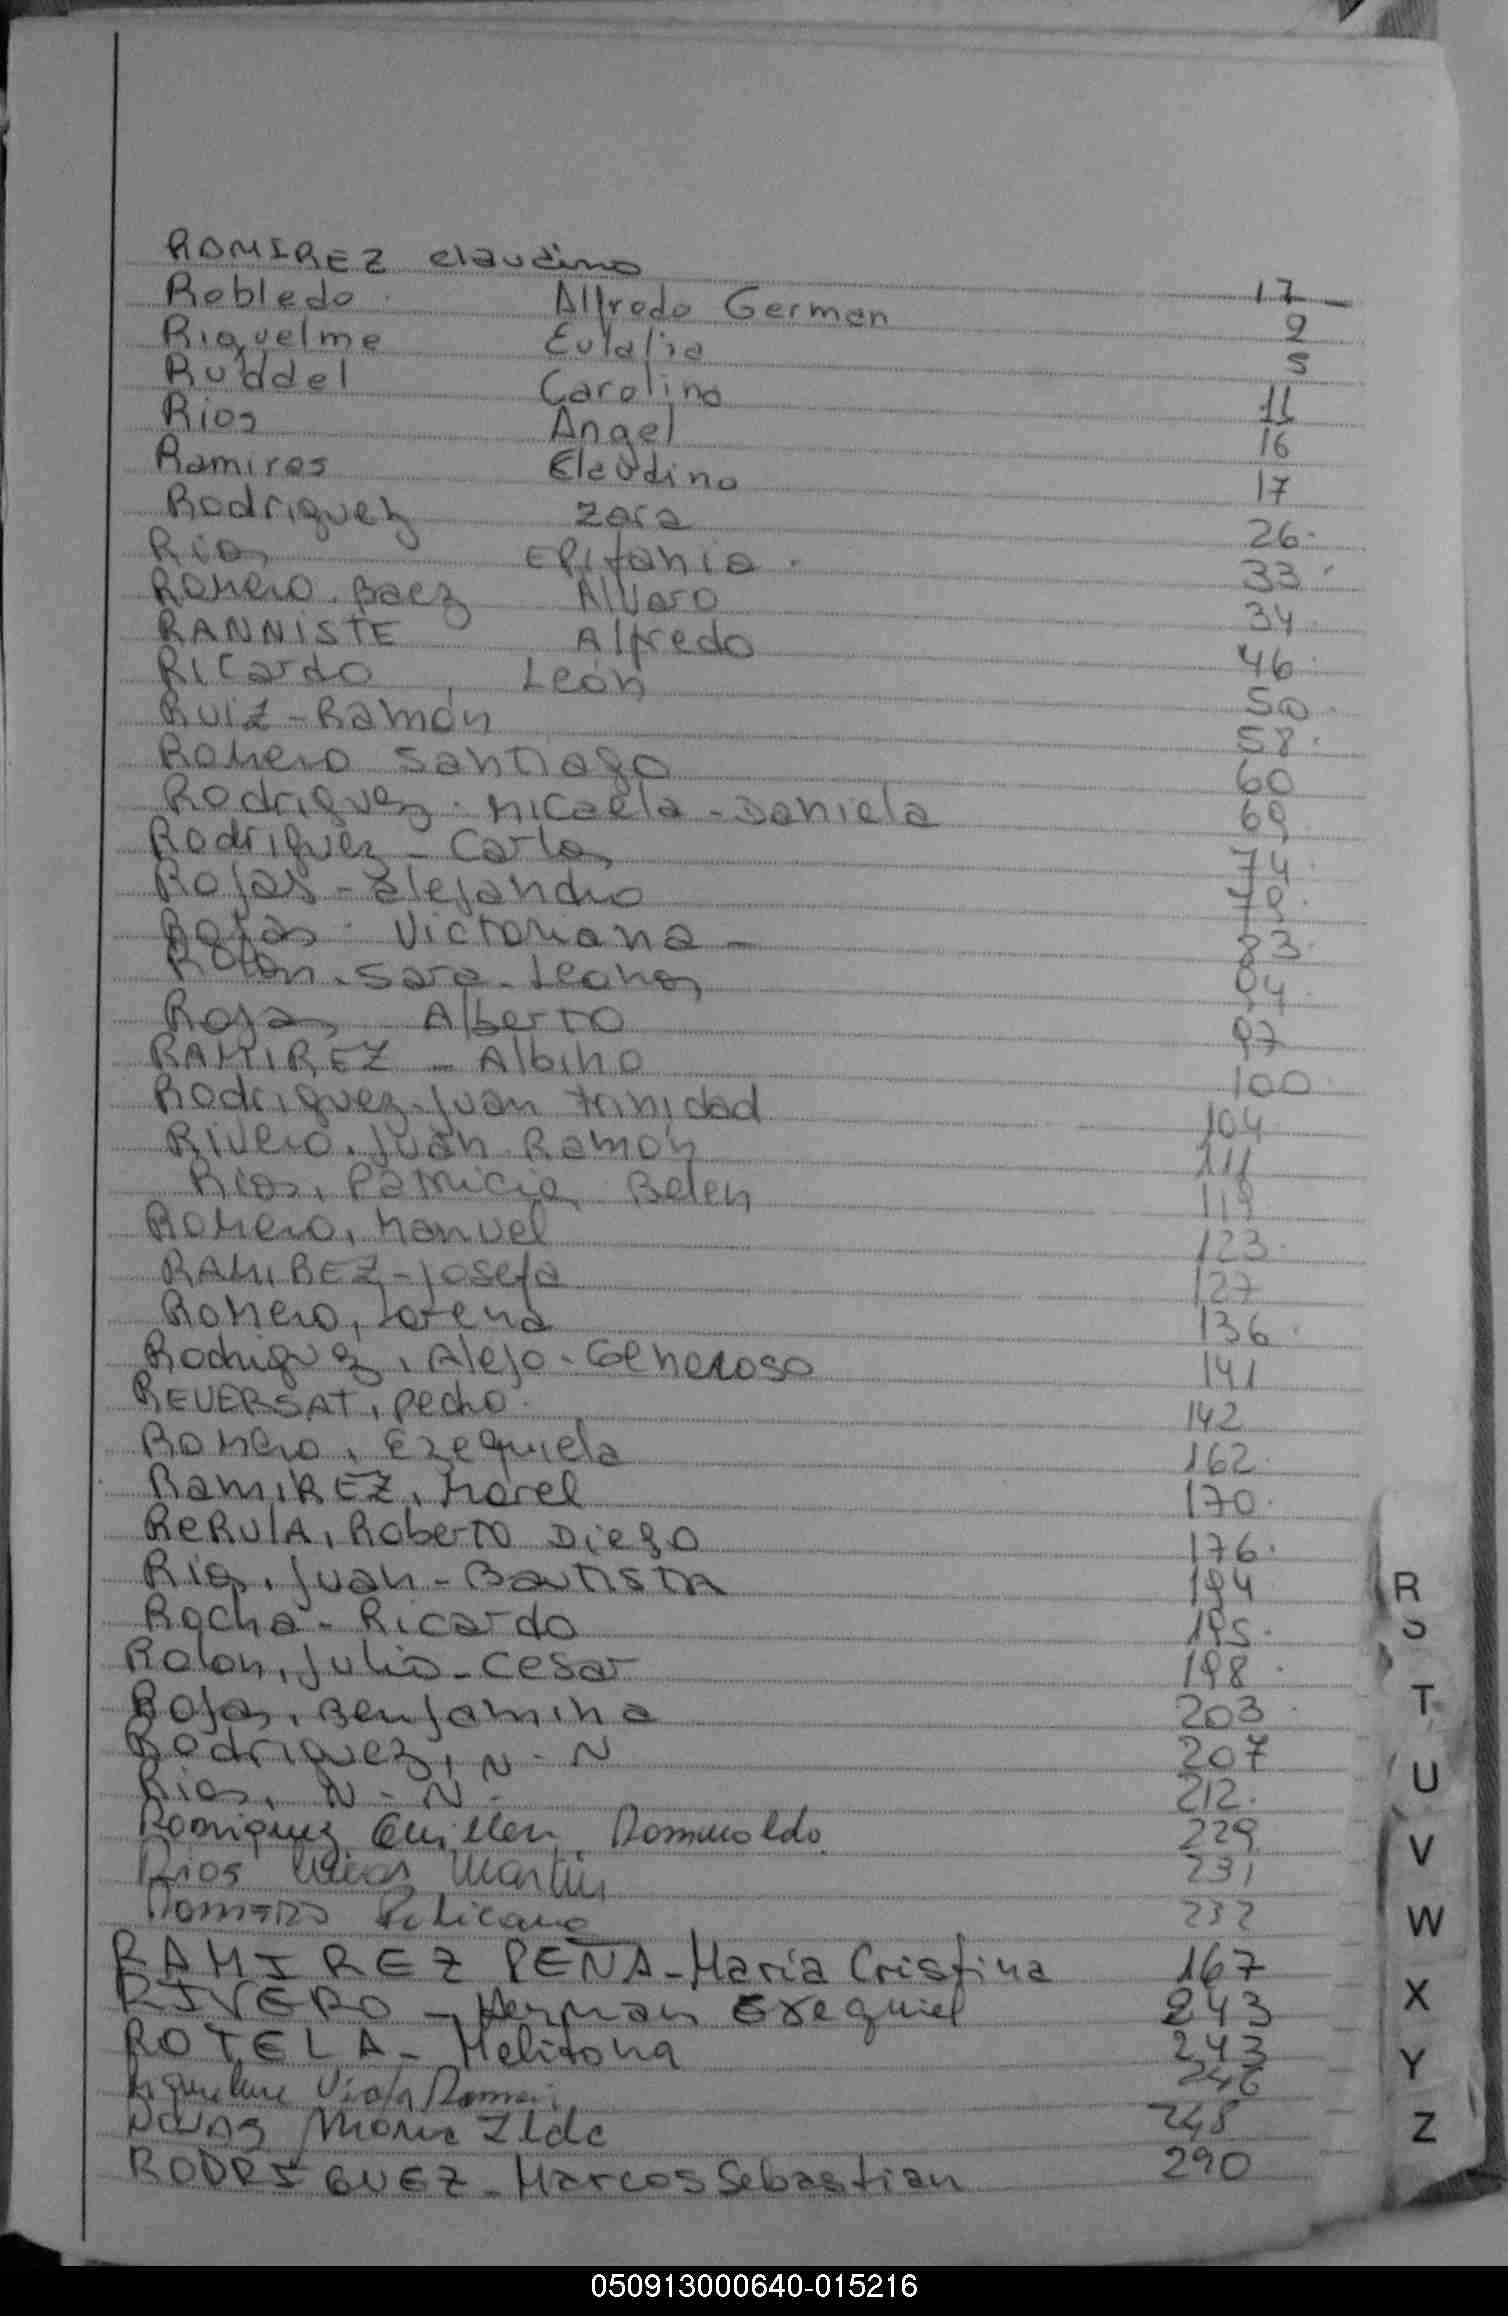 RAMIREZ Claudino 17
Robledo Alfredo German 2
Riquelme Eulalia 5
Ruddel Carolina 11
Rios Angel 16
Ramires Claudino 17
Rodriguez Zara 26
Rios EPifania 33
Romero Baez Alvaro 34
RANNISTE Alfredo 46
Ricardo, León 50
Ruiz - Ramón 58
Romero Santiago 60
Rodriguez - Micaela - Daniela 69
Rodriguez - Carlos 74
Rojas - Alejandro 79
Rojas Victoriana - 83
Rolon - Sara - Leonor 94
Rojas Alberto 97
RAMIREZ - Albino 100
Rodriguez - Juan trinidad 104
Rivero, Juan Ramón 111
Rios, Patricia Belen 119
Romero, Manuel 123
RAMIREZ - Josefa 127
Romero, Lorena 136
Rodriguez, Alejo - Generoso 141
REVERSAT, Pedro 142
Romero, Ezequiela 162
RamiREZ, Morel 170
ReRulA, Roberto Diego 176
Rios, Juan - Bautista 194
Rocha - Ricardo 195
Rolon, Julio - Cesar 198
Rojas, Benjamina 203
Rodriguez, N - N 207
Rios, N - N - 212
Rodriguez Guillen Romualdo 229
Rios Lucas Martin 231
Romero 232
RAMIREZ PEÑA - Maria Cristina 167
RIVERO - Herman Exequiel 243
ROTELA - Melitona 243
Riquelme 246
Maria Ilda 248
RODRIGUEZ - Marcos Sebastian 290
R
S
T
U
V
W
X
Y
Z
050913000640-015216